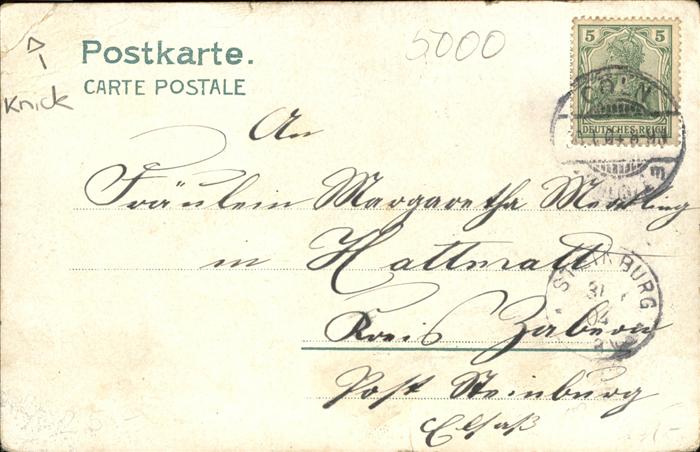 Postkarte.
CARTE POSTALE
Knick
5000
5 5
DEUTSCHES REICH
CÖLN
An
Fräulein Margaretha
in Hattmatt
Kreis Zabern
Post Steinburg
Elsaß
STEINBURG
31
04